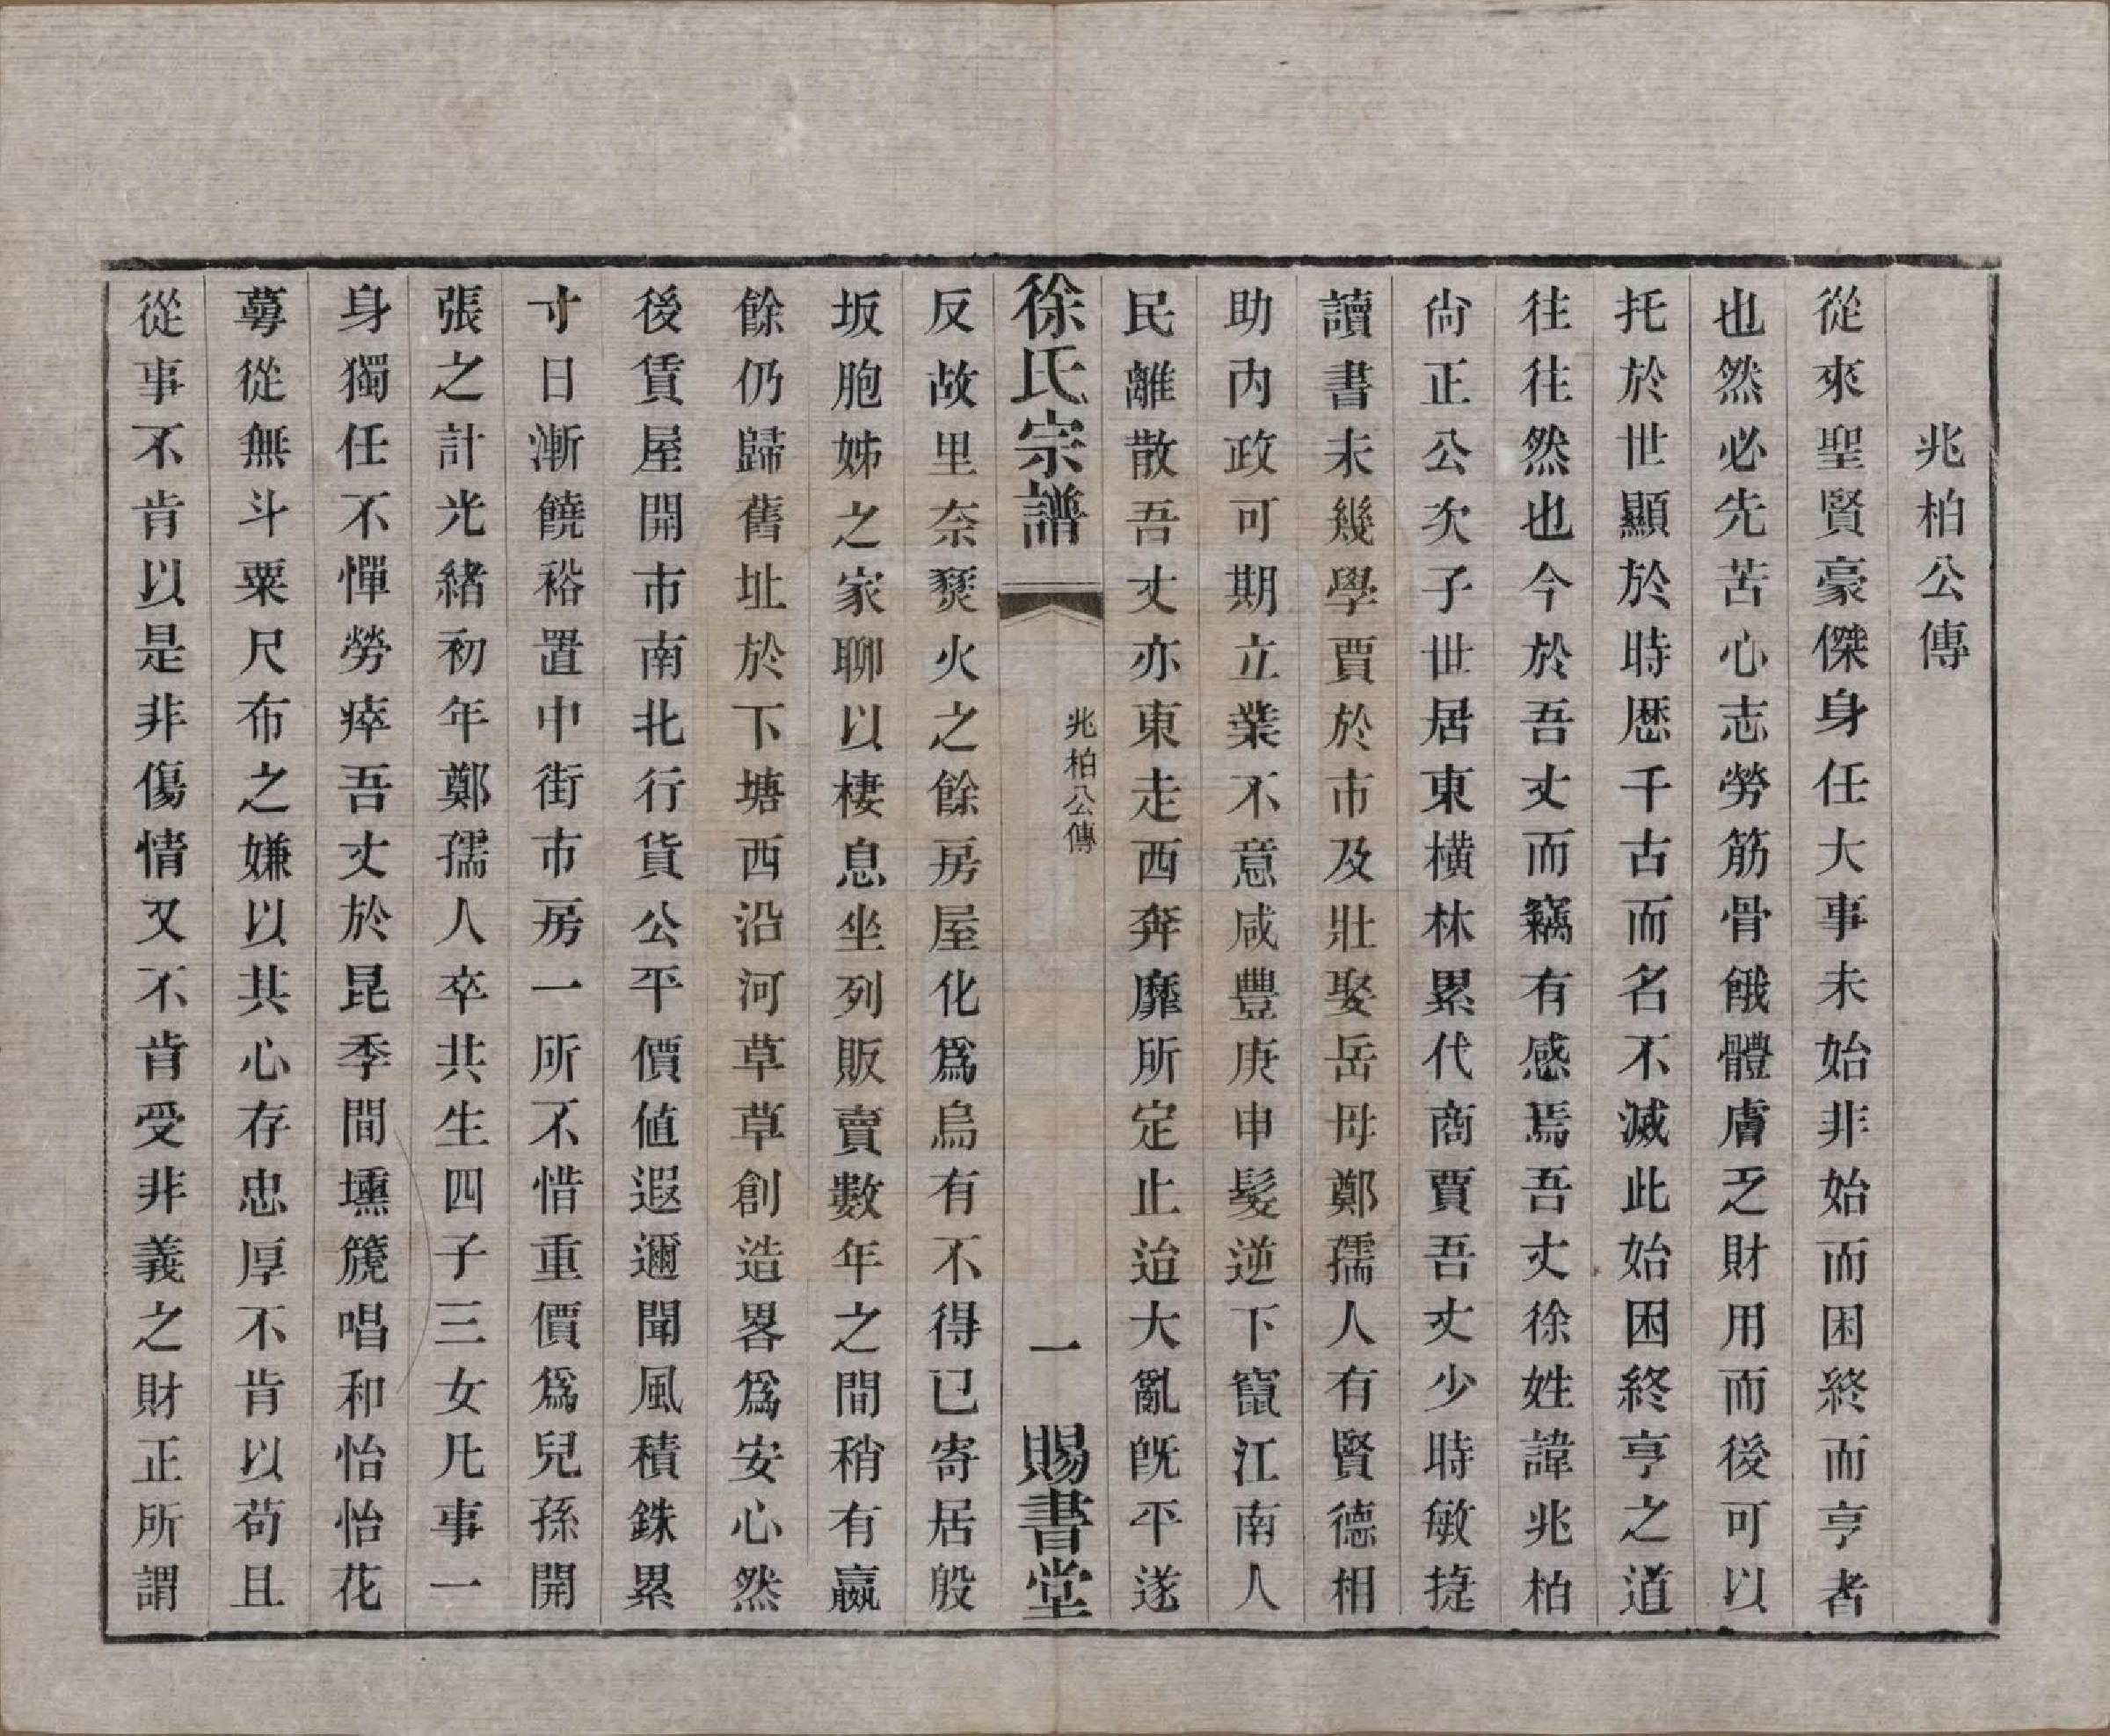 兆柏公傳
從來聖賢豪傑身任大事未始非始而困終而亨者
也然必先苦心志勞筋骨餓體膚乏財用而後可以
托於世顯於時歴千古而名不滅此始困終亨之道
往往然也今於吾丈而竊有感焉吾丈徐姓諱兆柏
尙正公次子世居東橫林累代商賈吾丈少時敏捷
讀書未幾學賈於市及壯娶岳母鄭孺人有賢德相
助內政可期立業不意咸豐庚申髮逆下竄江南人
民離散吾丈亦東走西奔靡所定止迨大亂旣平遂
徐氏宗譜
兆柏公傳
一
賜書堂
反故里奈燹火之餘房屋化爲烏有不得已寄居殷
坂胞姊之家聊以棲息坐列販賣數年之間稍有嬴
餘仍歸舊址於下塘西沿河草草創造畧爲安心然
後賃屋開市南北行貨公平價値遐邇聞風積銖累
寸日漸饒裕置中街市房一所不惜重價爲兒孫開
張之計光緖初年鄭孺人卒共生四子三女凡事一
身獨任不憚勞瘁吾丈於昆季間壎篪唱和怡怡花
蕚從無斗粟尺布之嫌以其心存忠厚不肯以苟且
從事不肯以是非傷情又不肯受非義之財正所謂